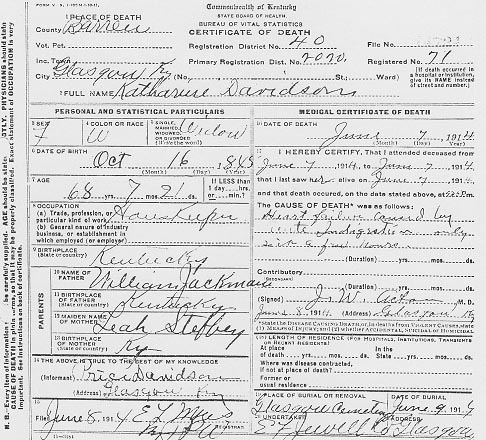 Commonwealth of Kentucky
STATE BOARD OF HEALTH
BUREAU OF VITAL STATISTICS
CERTIFICATE OF DEATH
1 PLACE OF DEATH
County Barren
Vot. Pct. Registration District No. 40 File No.
Inc. Town Primary Registration Dist. No. 2020 Registered No. 71
City Glasgow Ky (No. St.; Ward)
[If death occurred in a hospital or institution, give its NAME instead of street and number.]
2 FULL NAME Katharine Davidson
PERSONAL AND STATISTICAL PARTICULARS
3 SEX F
4 COLOR OR RACE W
5 SINGLE, MARRIED, WIDOWED, OR DIVORCED (Write the word) Widow
6 DATE OF BIRTH
Oct 16 1845
(Month) (Day) (Year)
7 AGE
68 yrs. 7 mos. 2 ds.
If LESS than 1 day....hrs. or....min.?
8 OCCUPATION
(a) Trade, profession, or particular kind of work Housekeeper
(b) General nature of industry business, or establishment in which employed (or employer)
9 BIRTHPLACE
(State or country) Kentucky
PARENTS
10 NAME OF FATHER William Jackman
11 BIRTHPLACE OF FATHER
(State or country) Kentucky
12 MAIDEN NAME OF MOTHER Leah Steffey
13 BIRTHPLACE OF MOTHER
(State or country) Ky
14 THE ABOVE IS TRUE TO THE BEST OF MY KNOWLEDGE
(Informant) Davidson
(Address) Glasgow Ky
15
Filed June 8, 1914
REGISTRAR
MEDICAL CERTIFICATE OF DEATH
16 DATE OF DEATH
June 7, 1914
(Month) (Day) (Year)
17 I HEREBY CERTIFY, That I attended deceased from
June 7, 1914, to June 7, 1914,
that I last saw her alive on June 7, 1914,
and that death occurred, on the date stated above, at
The CAUSE OF DEATH* was as follows:
Heart failure caused by
acute Indigestion only
sick a few hours
(Duration) yrs. mos. ds.
Contributory
(Duration) yrs. mos. ds.
(Signed) J. W. Acton M. D.
June 8, 1914 (Address) Glasgow Ky
*State the DISEASE CAUSING DEATH, or, in deaths from VIOLENT CAUSES, state (1) MEANS OF INJURY; and (2) whether ACCIDENTAL, SUICIDAL, or HOMICIDAL.
18 LENGTH OF RESIDENCE (FOR HOSPITALS, INSTITUTIONS, TRANSIENTS OR RECENT RESIDENTS)
At place of death yrs. mos. ds. In the State yrs. mos. ds.
Where was disease contracted, if not at place of death?
Former or usual residence
19 PLACE OF BURIAL OR REMOVAL DATE OF BURIAL
Glasgow Cemetery June 9, 1914
20 UNDERTAKER
Glasgow